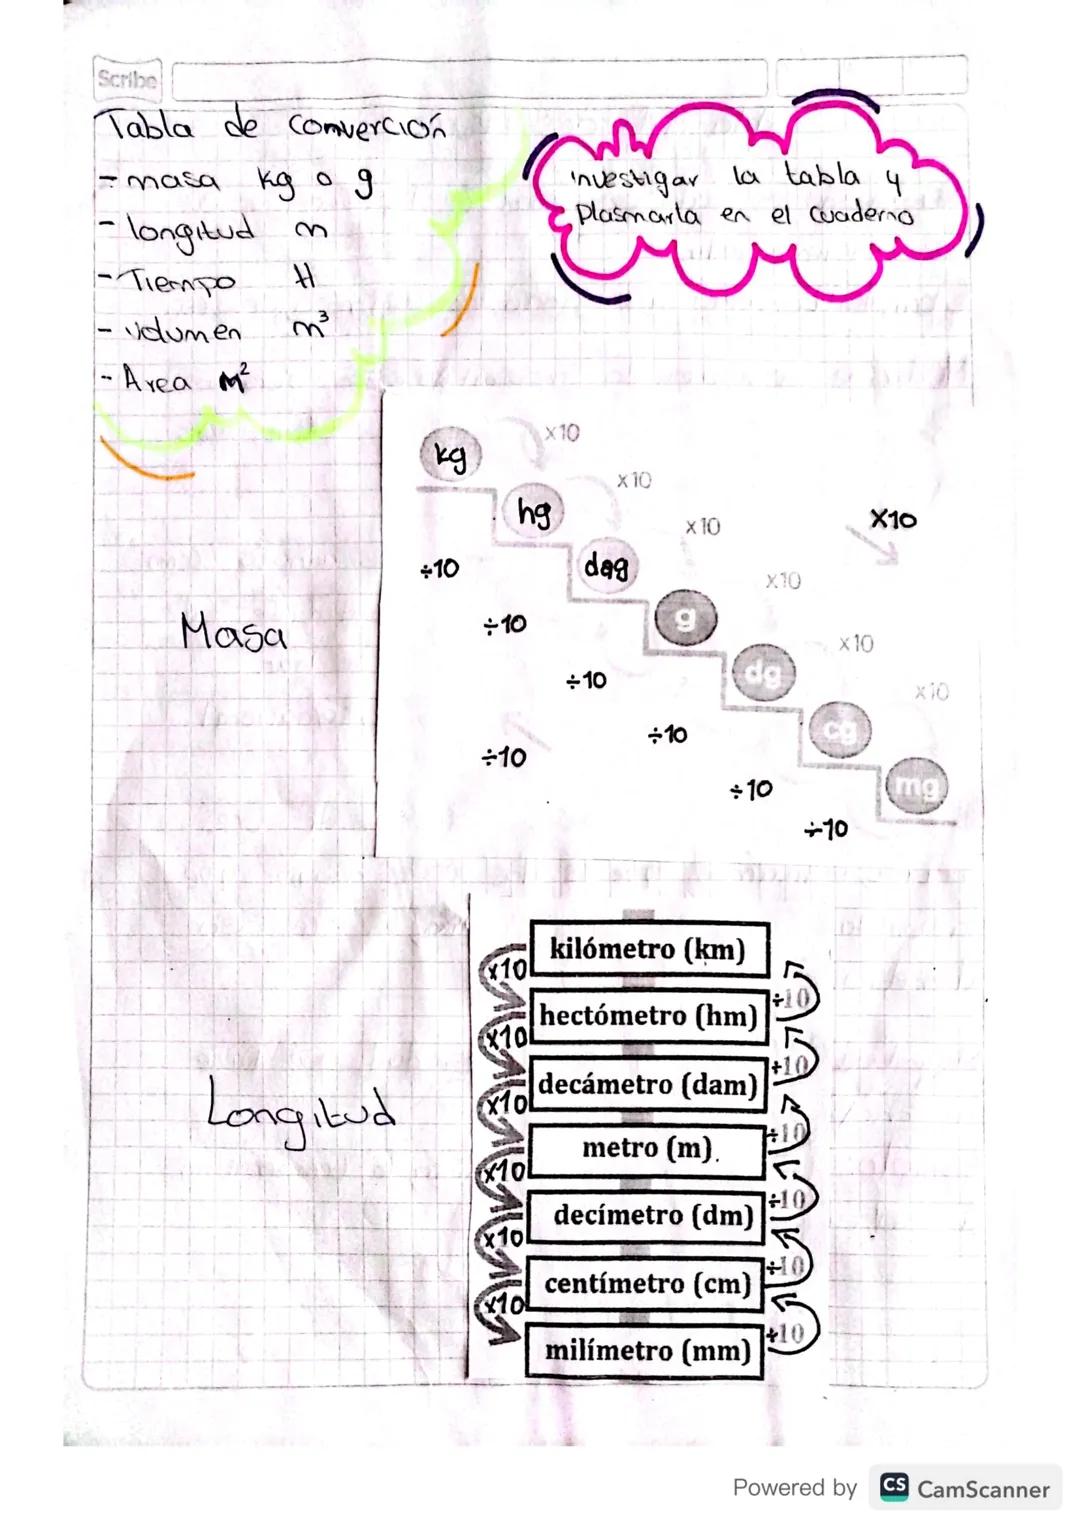 Scribe
Tabla de Converción
- masa kg o g
- longitud m
- Tiempo H
- volumen m³
- Area M²
investigar la tabla y
Plasmarla en el cuaderno
kg
x10
hg
x10
dag
x10
X10
÷10
g
x10
÷10
dg
x10
÷10
cg
x10
÷10
÷10
mg
÷10
÷10
Masa
kilómetro (km)
x10
÷10
hectómetro (hm)
x10
÷10
decámetro (dam)
x10
÷10
metro (m).
x10
÷10
decímetro (dm)
x10
÷10
centímetro (cm)
x10
÷10
milímetro (mm)
Longitud
Powered by CS CamScanner